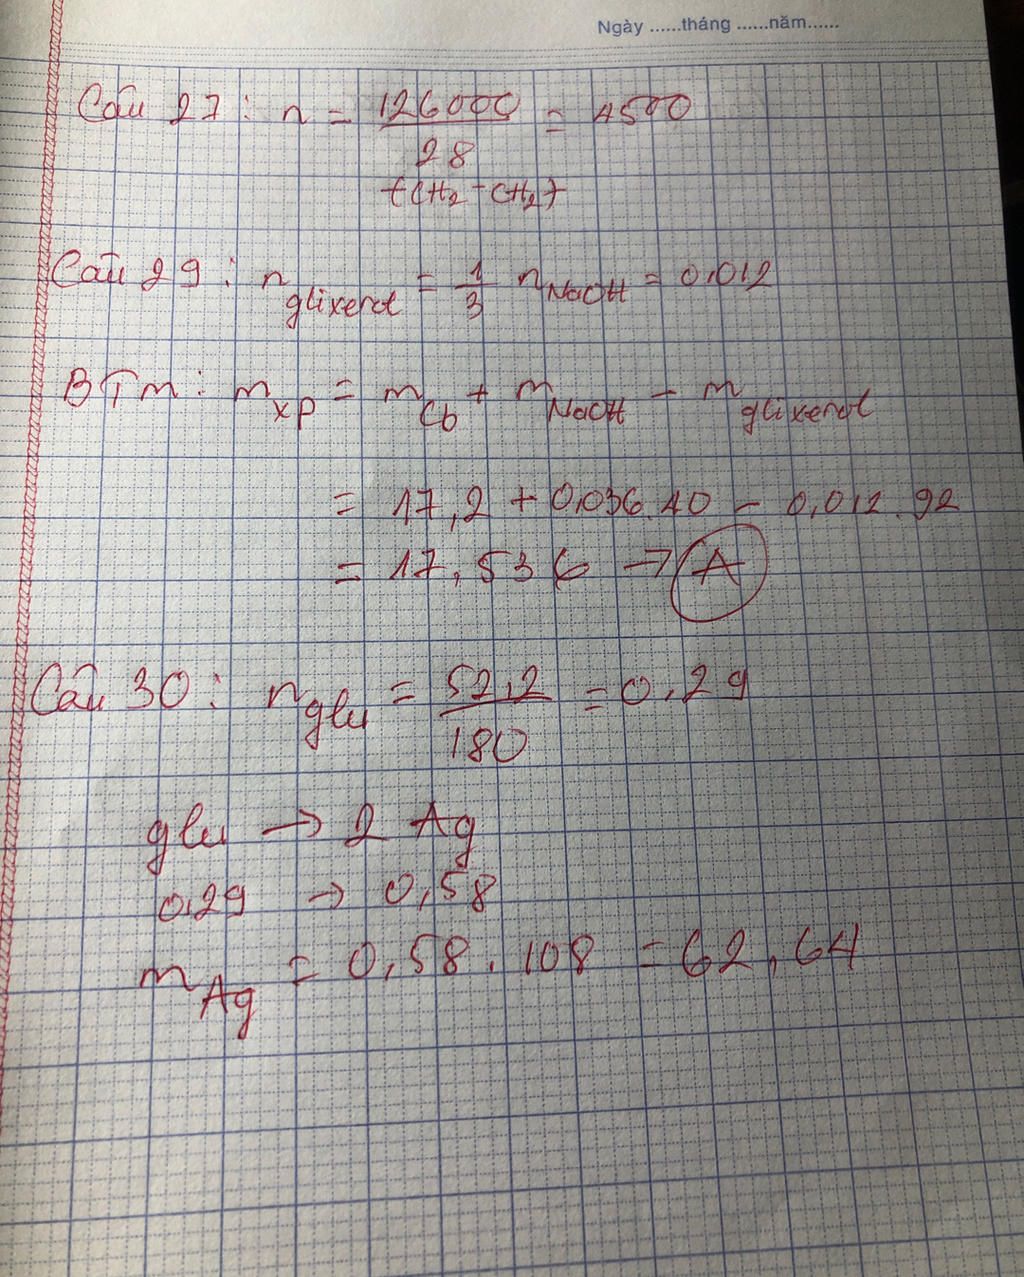 Ngày ......tháng ......năm......
Câu 27 : n = 126000 / 28 = 4500
-(CH2-CH2)-
Câu 29 : n glixerol = 1/3 n NaOH = 0,012
BTm : m xp = m cb + m NaOH - m glixerol
= 17,2 + 0,036.40 - 0,012.92
= 17,536 → A
Câu 30 : n glu = 52,2 / 180 = 0,29
glu → 2 Ag
0,29 → 0,58
m Ag = 0,58 . 108 = 62,64